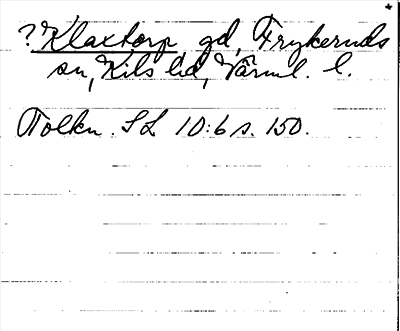 ?Klaxtorp gd, Frykeruds
sn, Kils hd, Värml. l.
Tolkn. SL 10:6 s. 150.